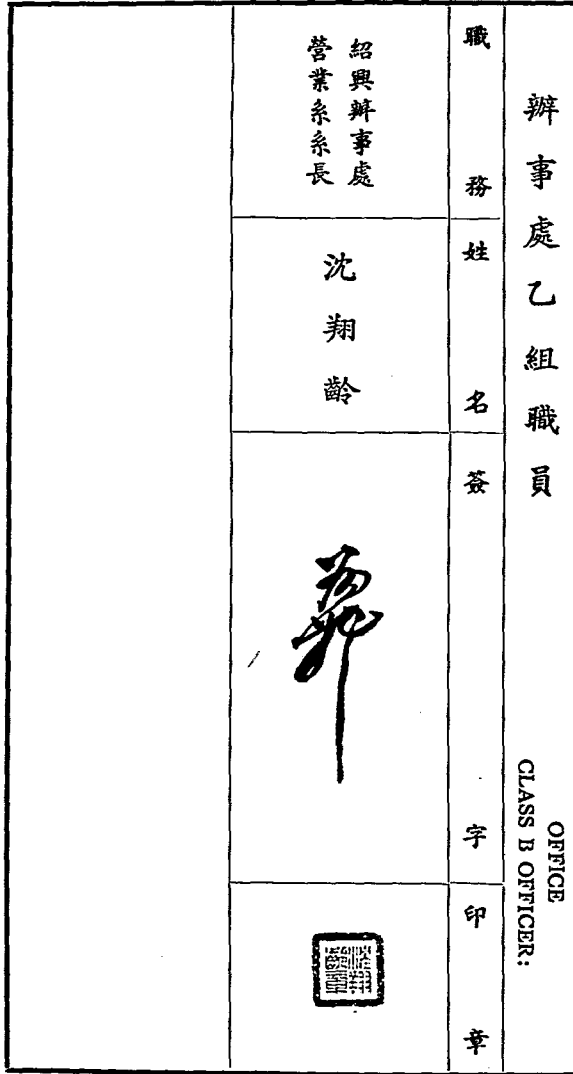 辦事處乙組職員
OFFICE
CLASS B OFFICER:
職務
姓名
簽字
印章
紹興辦事處
營業系系長
沈翔齡
沈翔
齡章